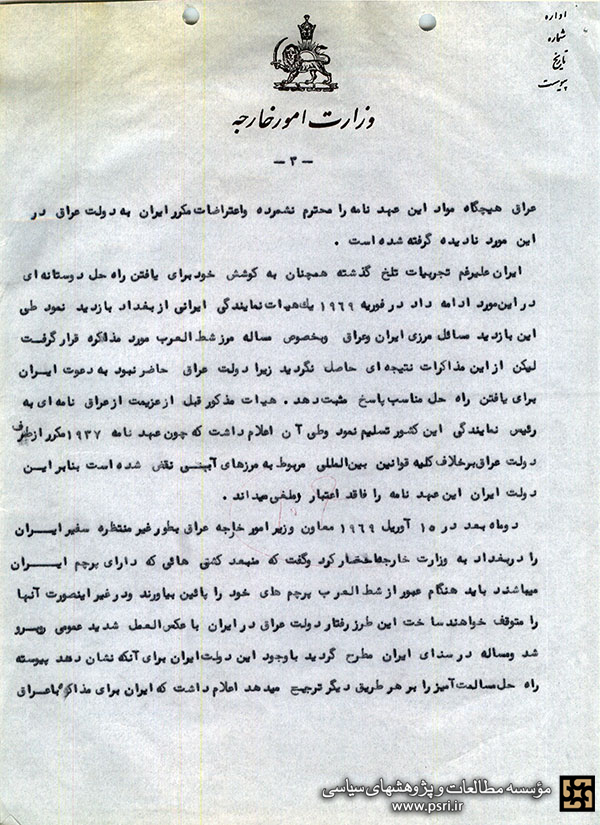 اداره
شماره
تاریخ
پیوست
وزارت امور خارجه
- ۳ -
عراق هیچگاه مواد این عهد نامه را محترم نشمرده و اعتراضات مکرر ایران به دولت عراق در
این مورد نادیده گرفته شده است .
ایران علیرغم تجربیات تلخ گذشته همچنان به کوشش خود برای یافتن راه حل دوستانه ای
در این مورد ادامه داد در فوریه ۱۹۶۹ یک هیات نمایندگی ایرانی از بغداد بازدید نمود طی
این بازدید مسائل مرزی ایران و عراق وبخصوص مساله مرز شط العرب مورد مذاکره قرار گرفت
لیکن از این مذاکرات نتیجه ای حاصل نگردید زیرا دولت عراق حاضر نبود به دعوت ایران
برای یافتن راه حل مناسب پاسخ مثبت دهد . هیات مذکور قبل از عزیمت از عراق نامه ای به
رئیس نمایندگی این کشور تسلیم نمود وطی آن اعلام داشت که چون عهد نامه ۱۹۳۷ مکرر از طرف
دولت عراق برخلاف کلیه قوانین بین‌المللی مربوط به مرزهای آبی نقض شده است بنابر این
دولت ایران این عهد نامه را فاقد اعتبار وملغی میداند .
دو ماه بعد در ۱۵ آوریل ۱۹۶۹ معاون وزیر امور خارجه عراق بطور غیر منتظره سفیر ایران
را در بغداد به وزارت خارجه احضار کرد وگفت که منبعد کشتی هائی که دارای پرچم ایران
میباشند باید هنگام عبور از شط العرب پرچم های خود را پائین بیاورند ودر غیر اینصورت آنها
را متوقف خواهند ساخت این طرز رفتار دولت عراق در ایران با عکس العمل شدید عمومی روبرو
شد ومساله در سنای ایران مطرح گردید باوجود این دولت ایران برای آنکه نشان دهد پیوسته
راه حل مسالمت آمیز را بر هر طریق دیگر ترجیح میدهد اعلام داشت که ایران برای مذاکره با عراق
مؤسسه مطالعات و پژوهشهای سیاسی
www.psri.ir